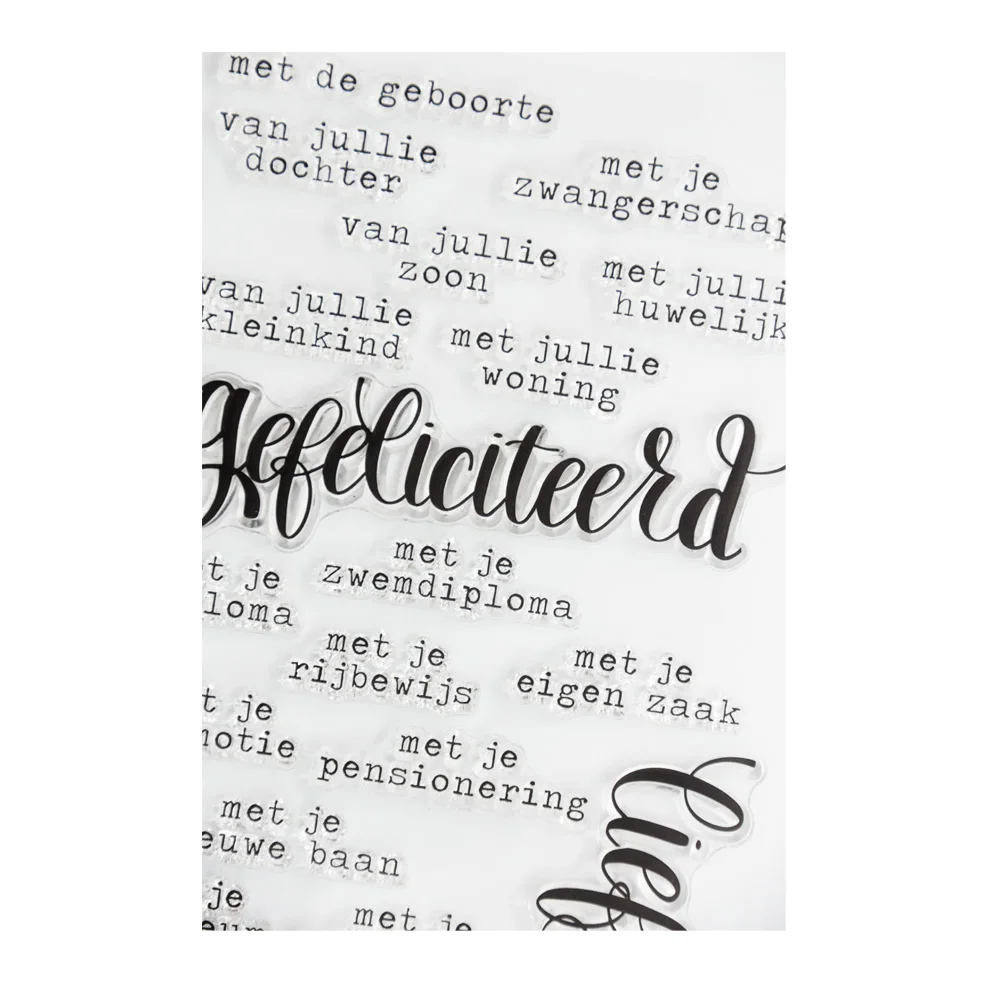 met de geboorte
van jullie
dochter
met je
zwangerschap
van jullie
zoon
met jullie
huwelijk
van jullie
kleinkind
met jullie
woning
gefeliciteerd
met je
zwemdiploma
t je
loma
met je
rijbewijs
met je
eigen zaak
t je
motie
met je
pensionering
met je
euwe baan
lief
je
met je